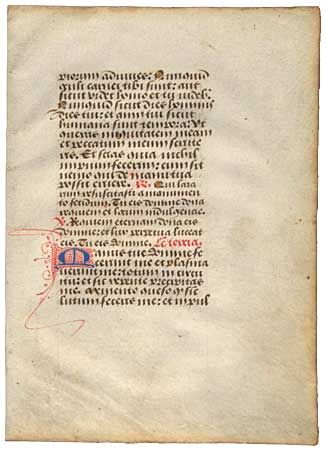 piorum adiuves: Nunquid
oculi carnei tibi sunt: aut
sicut videt homo et tu videb
Nunquid sicut dies hominis
dies tui: et anni tui sicut
humana sunt tempora: Ut
queras iniquitatem meam
et peccatum meum scrute
ris. Et scias quia nichil
impium fecerim: cum sit
nemo qui de manu tua
possit eruere. R. Qui laza
rum resuscitasti a monumen
to fetidum. Tu eis domine dona
requiem et locum indulgencie.
V. Requiem eternam dona eis
domine: et lux perpetua luceat
eis. Tu eis domine. Lectio
Manus tue domine fe
cerunt me et plasma
verunt me: totum in circu
itu: et sic repente precipitas
me. Memento queso qd sic
lutum feceris me: et in pul